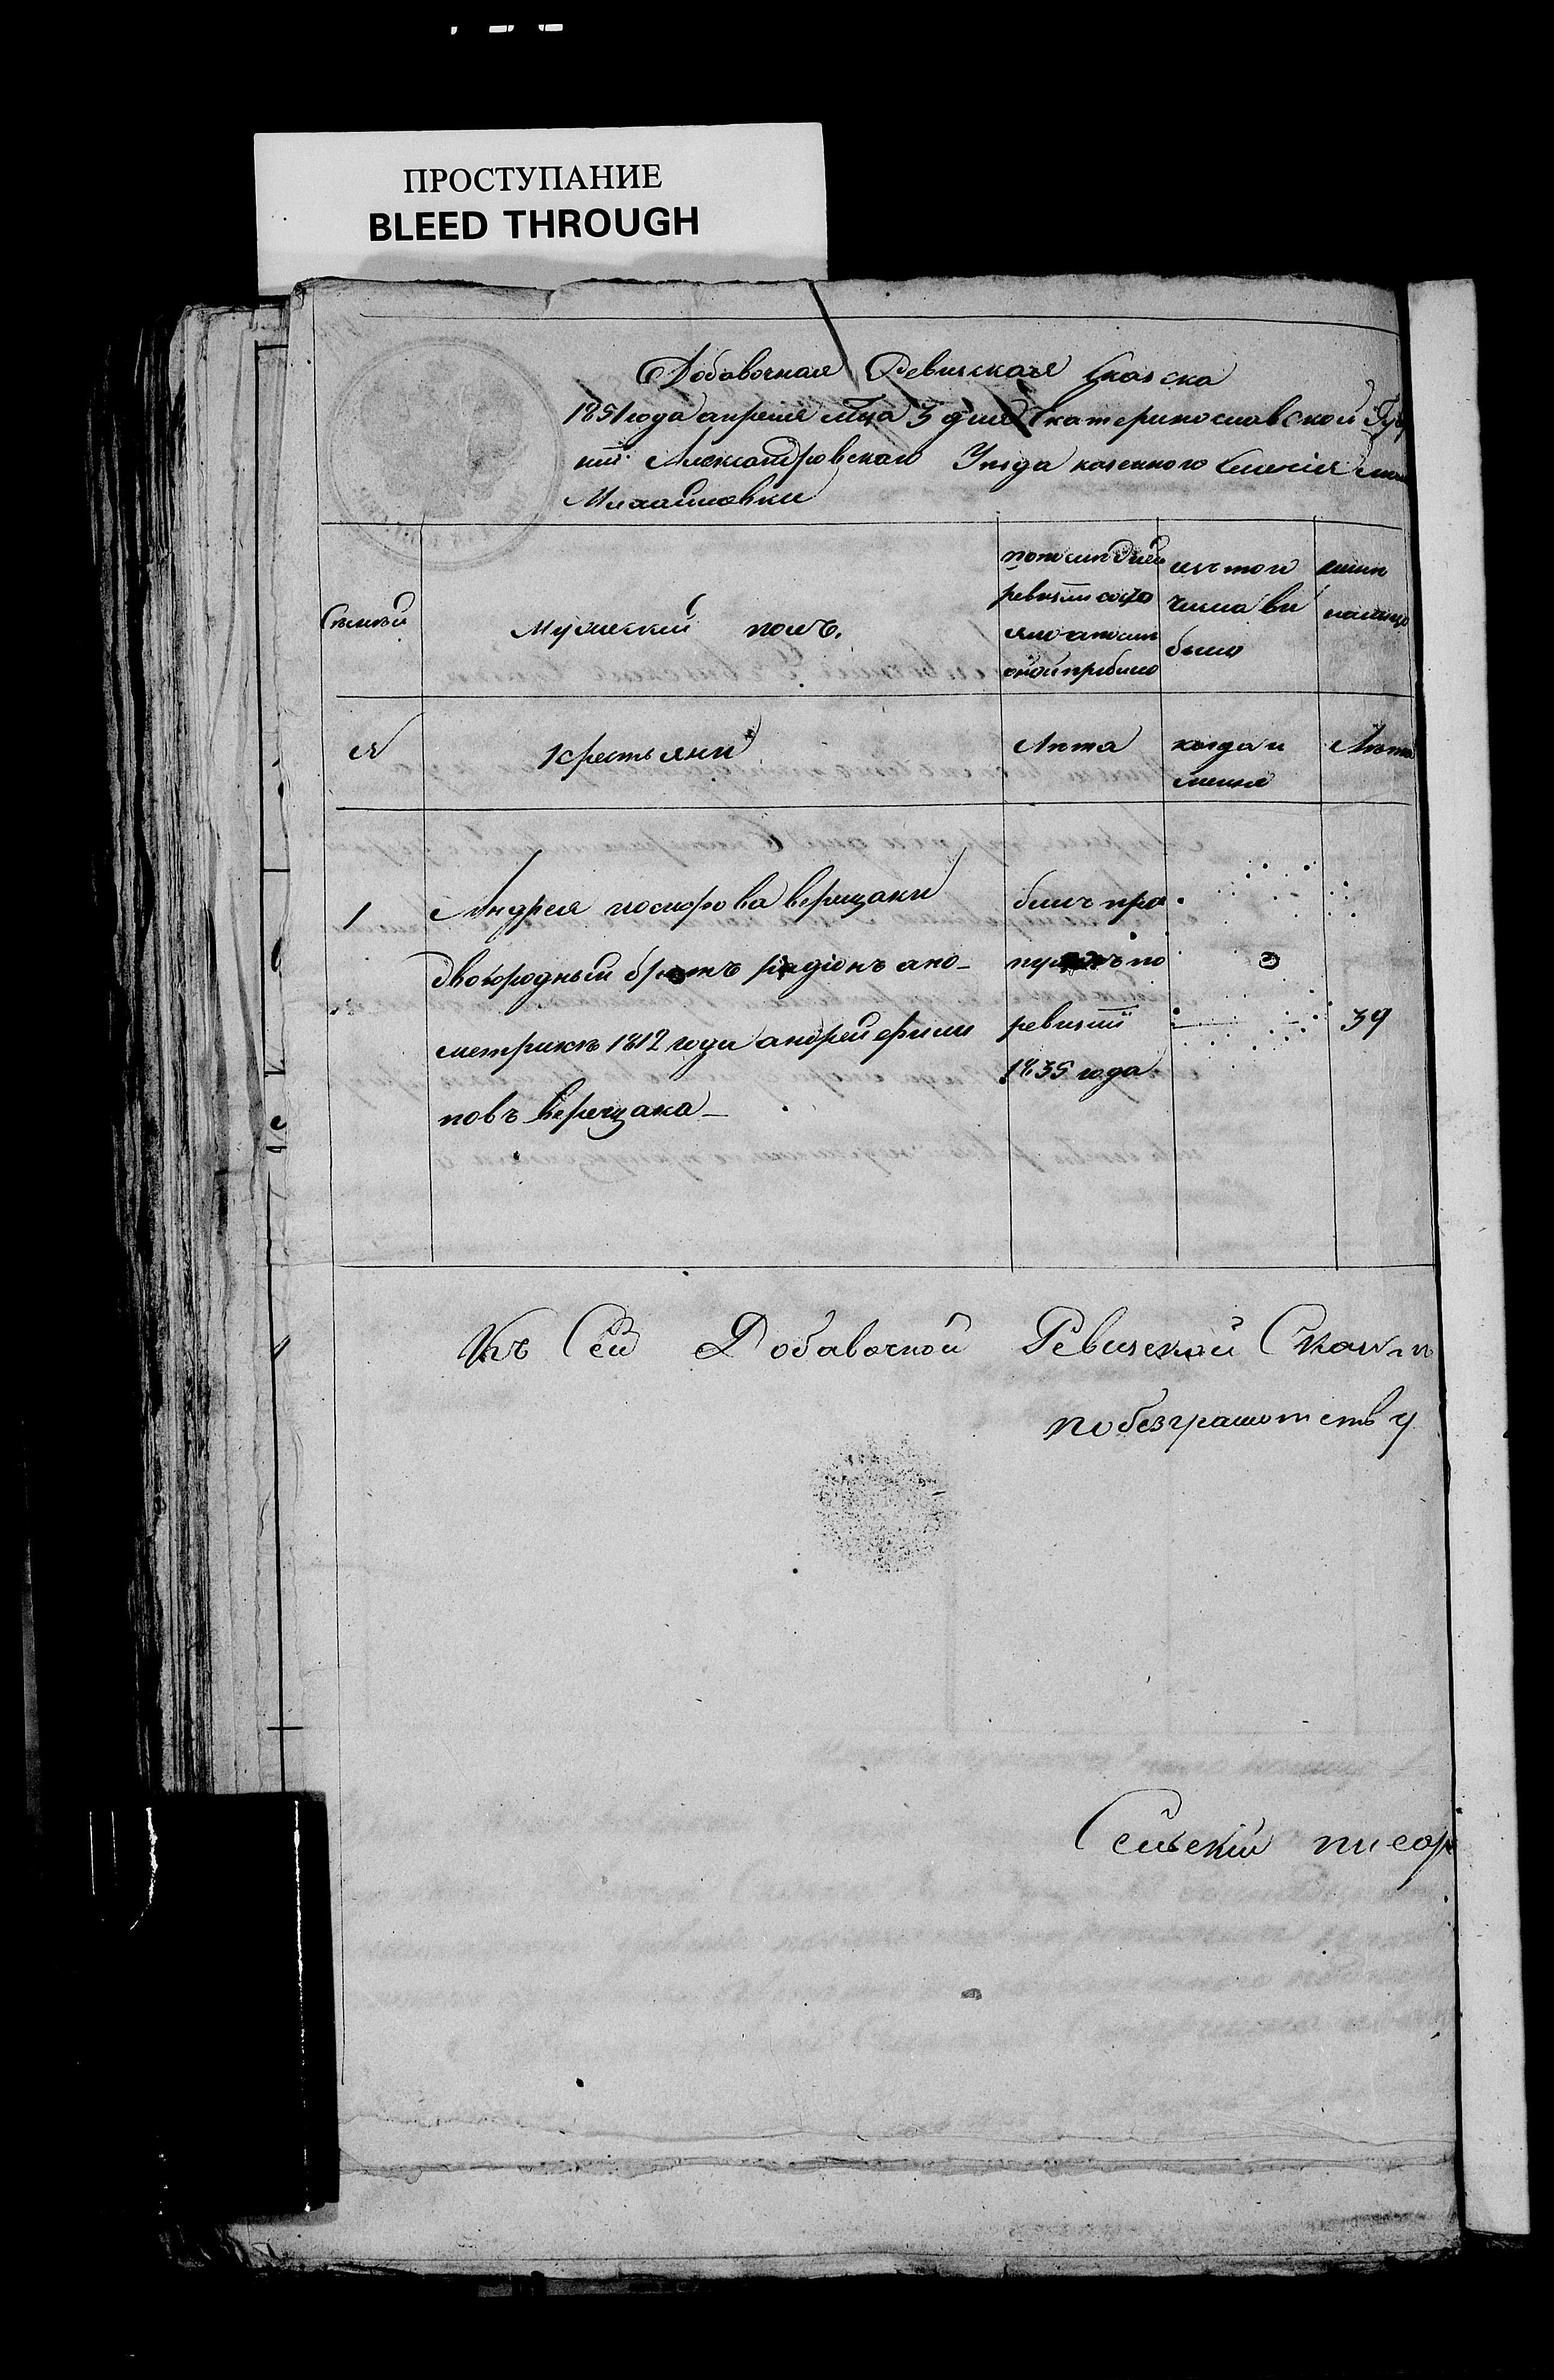 ПРОСТУПАНИЕ
BLEED THROUGH
Добавочная Ревизская Сказка
1851 года апреля мца 3 дня Екатеринославской Губ
нии Александровскаго Уезда казенного Селения
Михайловки
Семьи
Мужеский полъ.
последней
ревизіи состо
яло а после
оной прибыло
изъ того
числа вы
было
ныне
налицо
№
Крестьяни
Лѣта
когда и
именно
Лѣта
1
Андрея иосифова верещаки
двоюродный братъ радіонъ а по
метрике 1812 года андрей филип
повъ верещака
былъ про
пущенъ по
ревизіи
1835 года
39
Къ Сей Добавочной Ревизской Сказке
по безграмотству
Сельскій писар